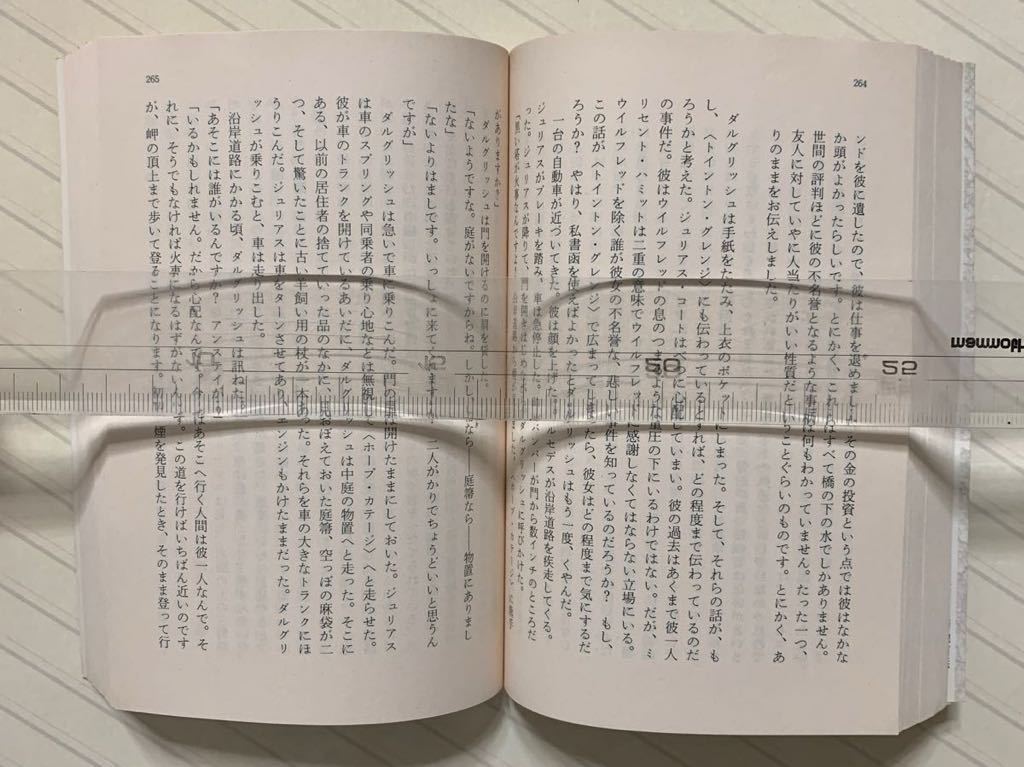 264
ンドを彼に遺したので、彼は仕事を退めました。その金の投資という点では彼はなかな
か頭がよかったらしいです。とにかく、これはすべて橋の下の水でしかありません。
世間の評判ほどに彼の不名誉となるような事は何もわかっていません。たった一つ、
友人に対していやに人当たりがいい性質だということぐらいのものです。とにかく、あ
りのままをお伝えしました。
ダルグリッシュは手紙をたたみ、上衣のポケットにしまった。そして、それらの話が、も
し、〈トイントン・グレンジ〉にも伝わっているとすれば、どの程度まで伝わっているのだ
ろうかと考えた。ジュリアス・コートはべつに心配していまい。彼の過去はあくまで彼一人
の事件だ。彼はウイルフレッドの息のつまるような重圧の下にいるわけではない。だが、ミ
リセント・ハミットは二重の意味でウイルフレッドに感謝しなくてはならない立場にいる。
ウイルフレッドを除く誰が彼女の不名誉な、悲しい事件を知っているのだろうか？ もし、
この話が〈トイントン・グレンジ〉で広まってしまったら、彼女はどの程度まで気にするだ
ろうか？ やはり、私書函を使えばよかったとダルグリッシュはもう一度、くやんだ。
一台の自動車が近づいてきた。彼は顔を上げた。メルセデスが沿岸道路を疾走してくる。
ジュリアスがブレーキを踏み、車は急停止した。バンパーが門から数インチのところだ
った。ジュリアスが降りて、門を開きはじめ、ダルグリッシュに呼びかけた。
「黒い塔が火事なんですよ！
265
がありますか？」
ダルグリッシュは門を開けるのに肩を貸した。
「ないようですな。庭がないですからね。しかし、箒なら――庭箒なら――物置にありまし
たな」
「ないよりはましです。いっしょに来てくれますか？ 二人がかりでちょうどいいと思うん
ですが」
ダルグリッシュは急いで車に乗りこんだ。門の扉は開けたままにしておいた。ジュリアス
は車のスプリングや同乗者の乗り心地などは無視して〈ホープ・カテージ〉へと走らせた。
彼が車のトランクを開けているあいだに、ダルグリッシュは中庭の物置へと走った。そこに
ある、以前の居住者の捨てていった品のなかに、見おぼえておいた庭箒、空っぽの麻袋が二
つ、そして驚いたことに古い羊飼い用の杖が一本あった。それらを車の大きなトランクにほ
うりこんだ。ジュリアスは車をターンさせてあり、エンジンもかけたままだった。ダルグリ
ッシュが乗りこむと、車は走り出した。
沿岸道路にかかる頃、ダルグリッシュは訊ねた。
「あそこには誰がいるんですか？ アンスティが？」
「いるかもしれません。だから心配なんです。今、あそこへ行く人間は彼一人なんで。そ
れに、そうでもなければ火事になるはずがないんです。この道を行けばいちばん近いのです
が、岬の頂上まで歩いて登ることになります。煙を発見したとき、そのまま登って行
mammoth
50
52